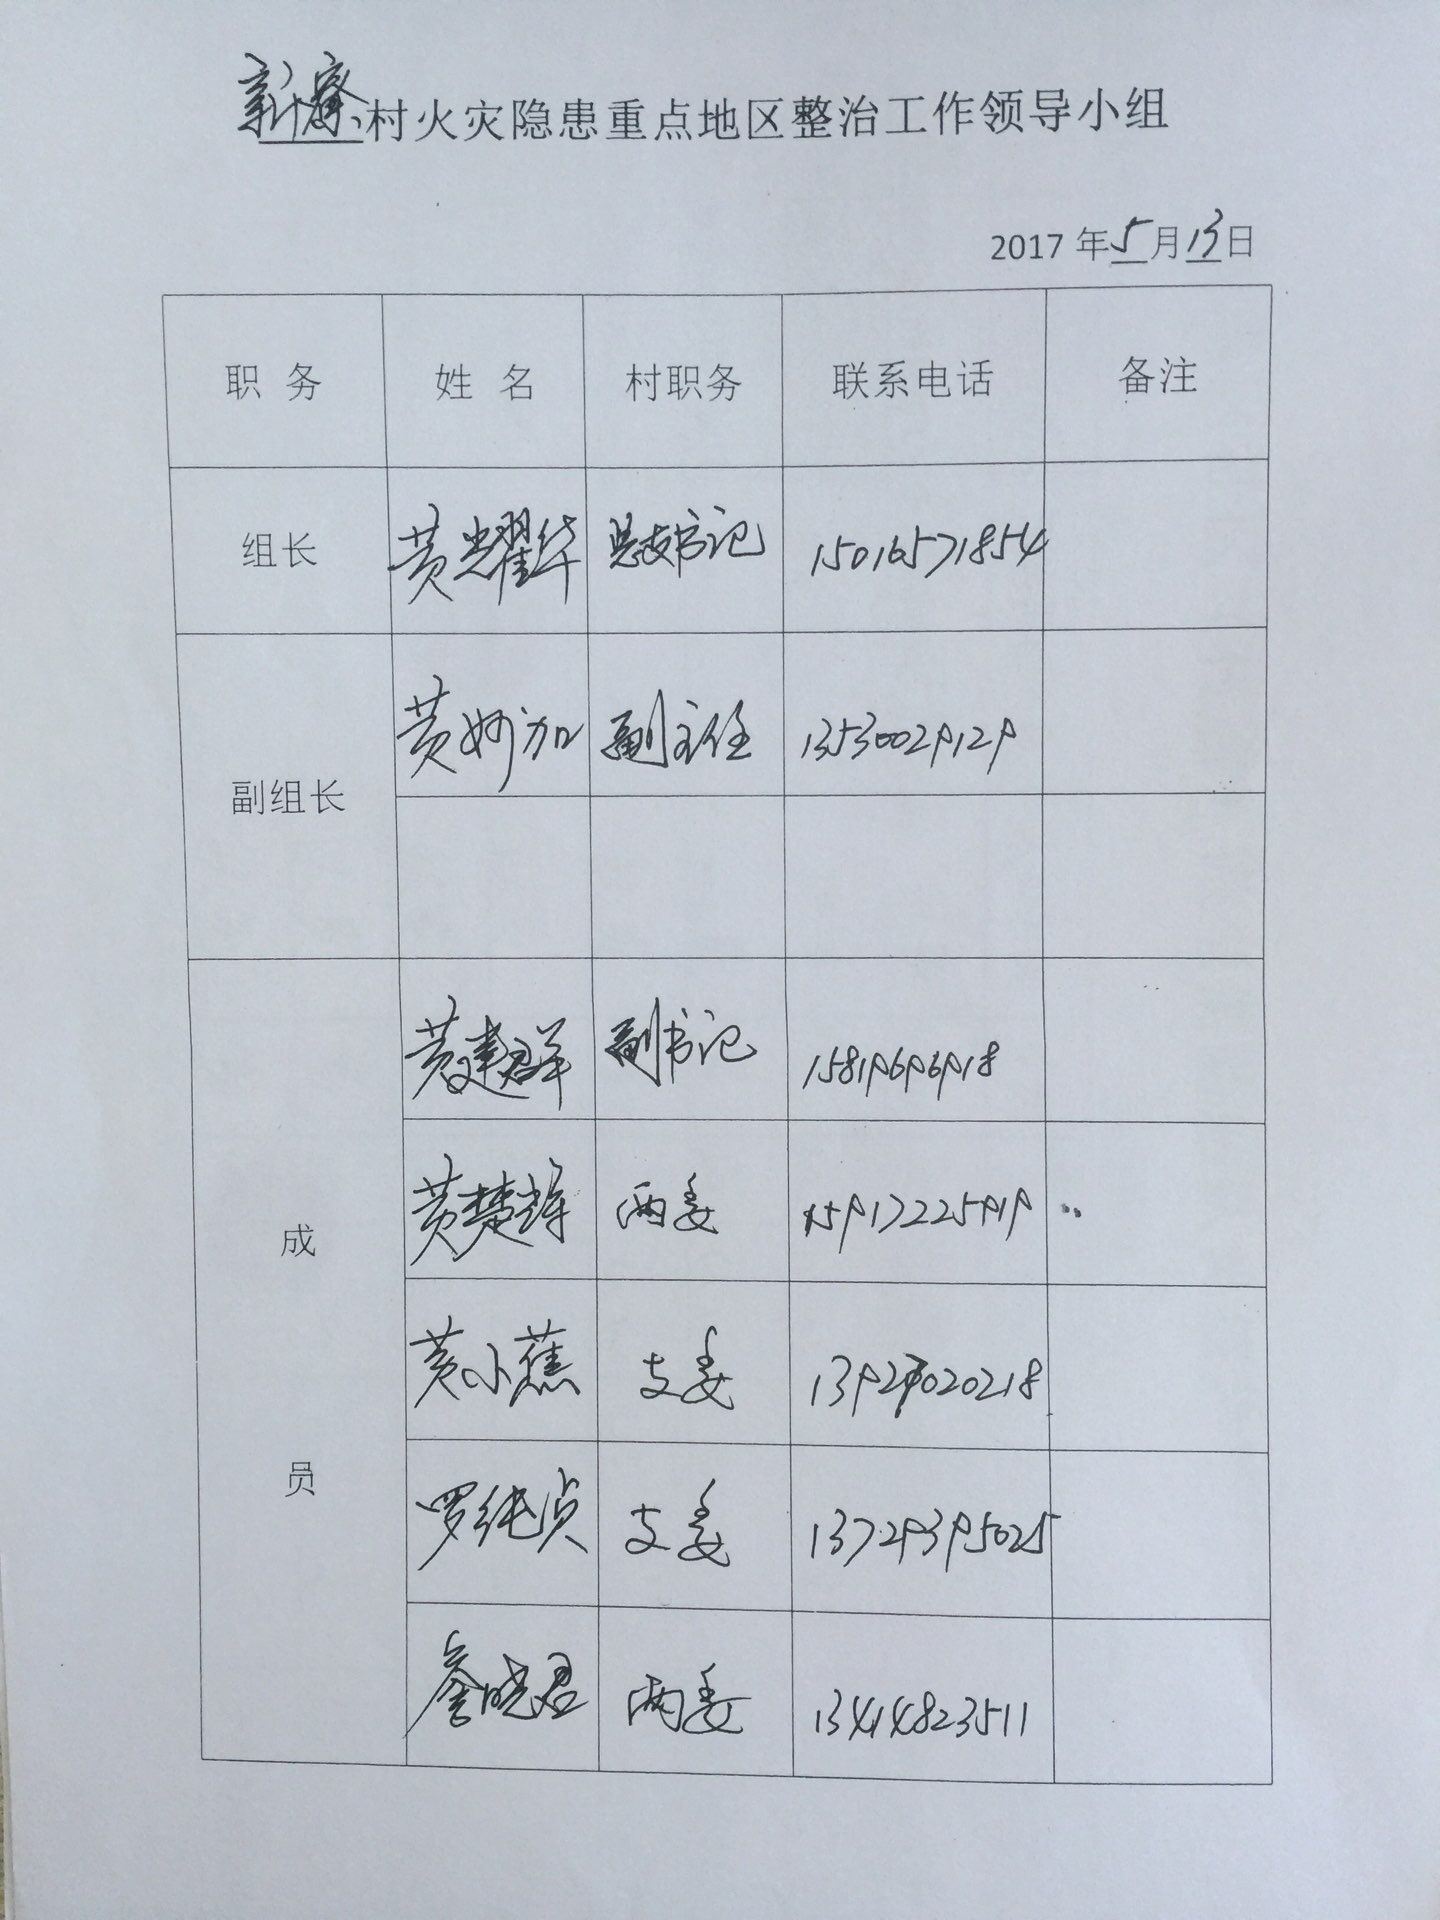 新寮村火灾隐患重点地区整治工作领导小组
2017年5月13日
职务 姓名 村职务 联系电话 备注
组长 黄耀华 总支书记 15016571854
副组长
黄妙加 副主任 13530029129
成员
黄建群 副书记 15819696918
黄楚辉 两委 15917225919
黄小蕉 支委 13927020218
罗纯贞 支委 13729395025
詹晓君 两委 13414823511